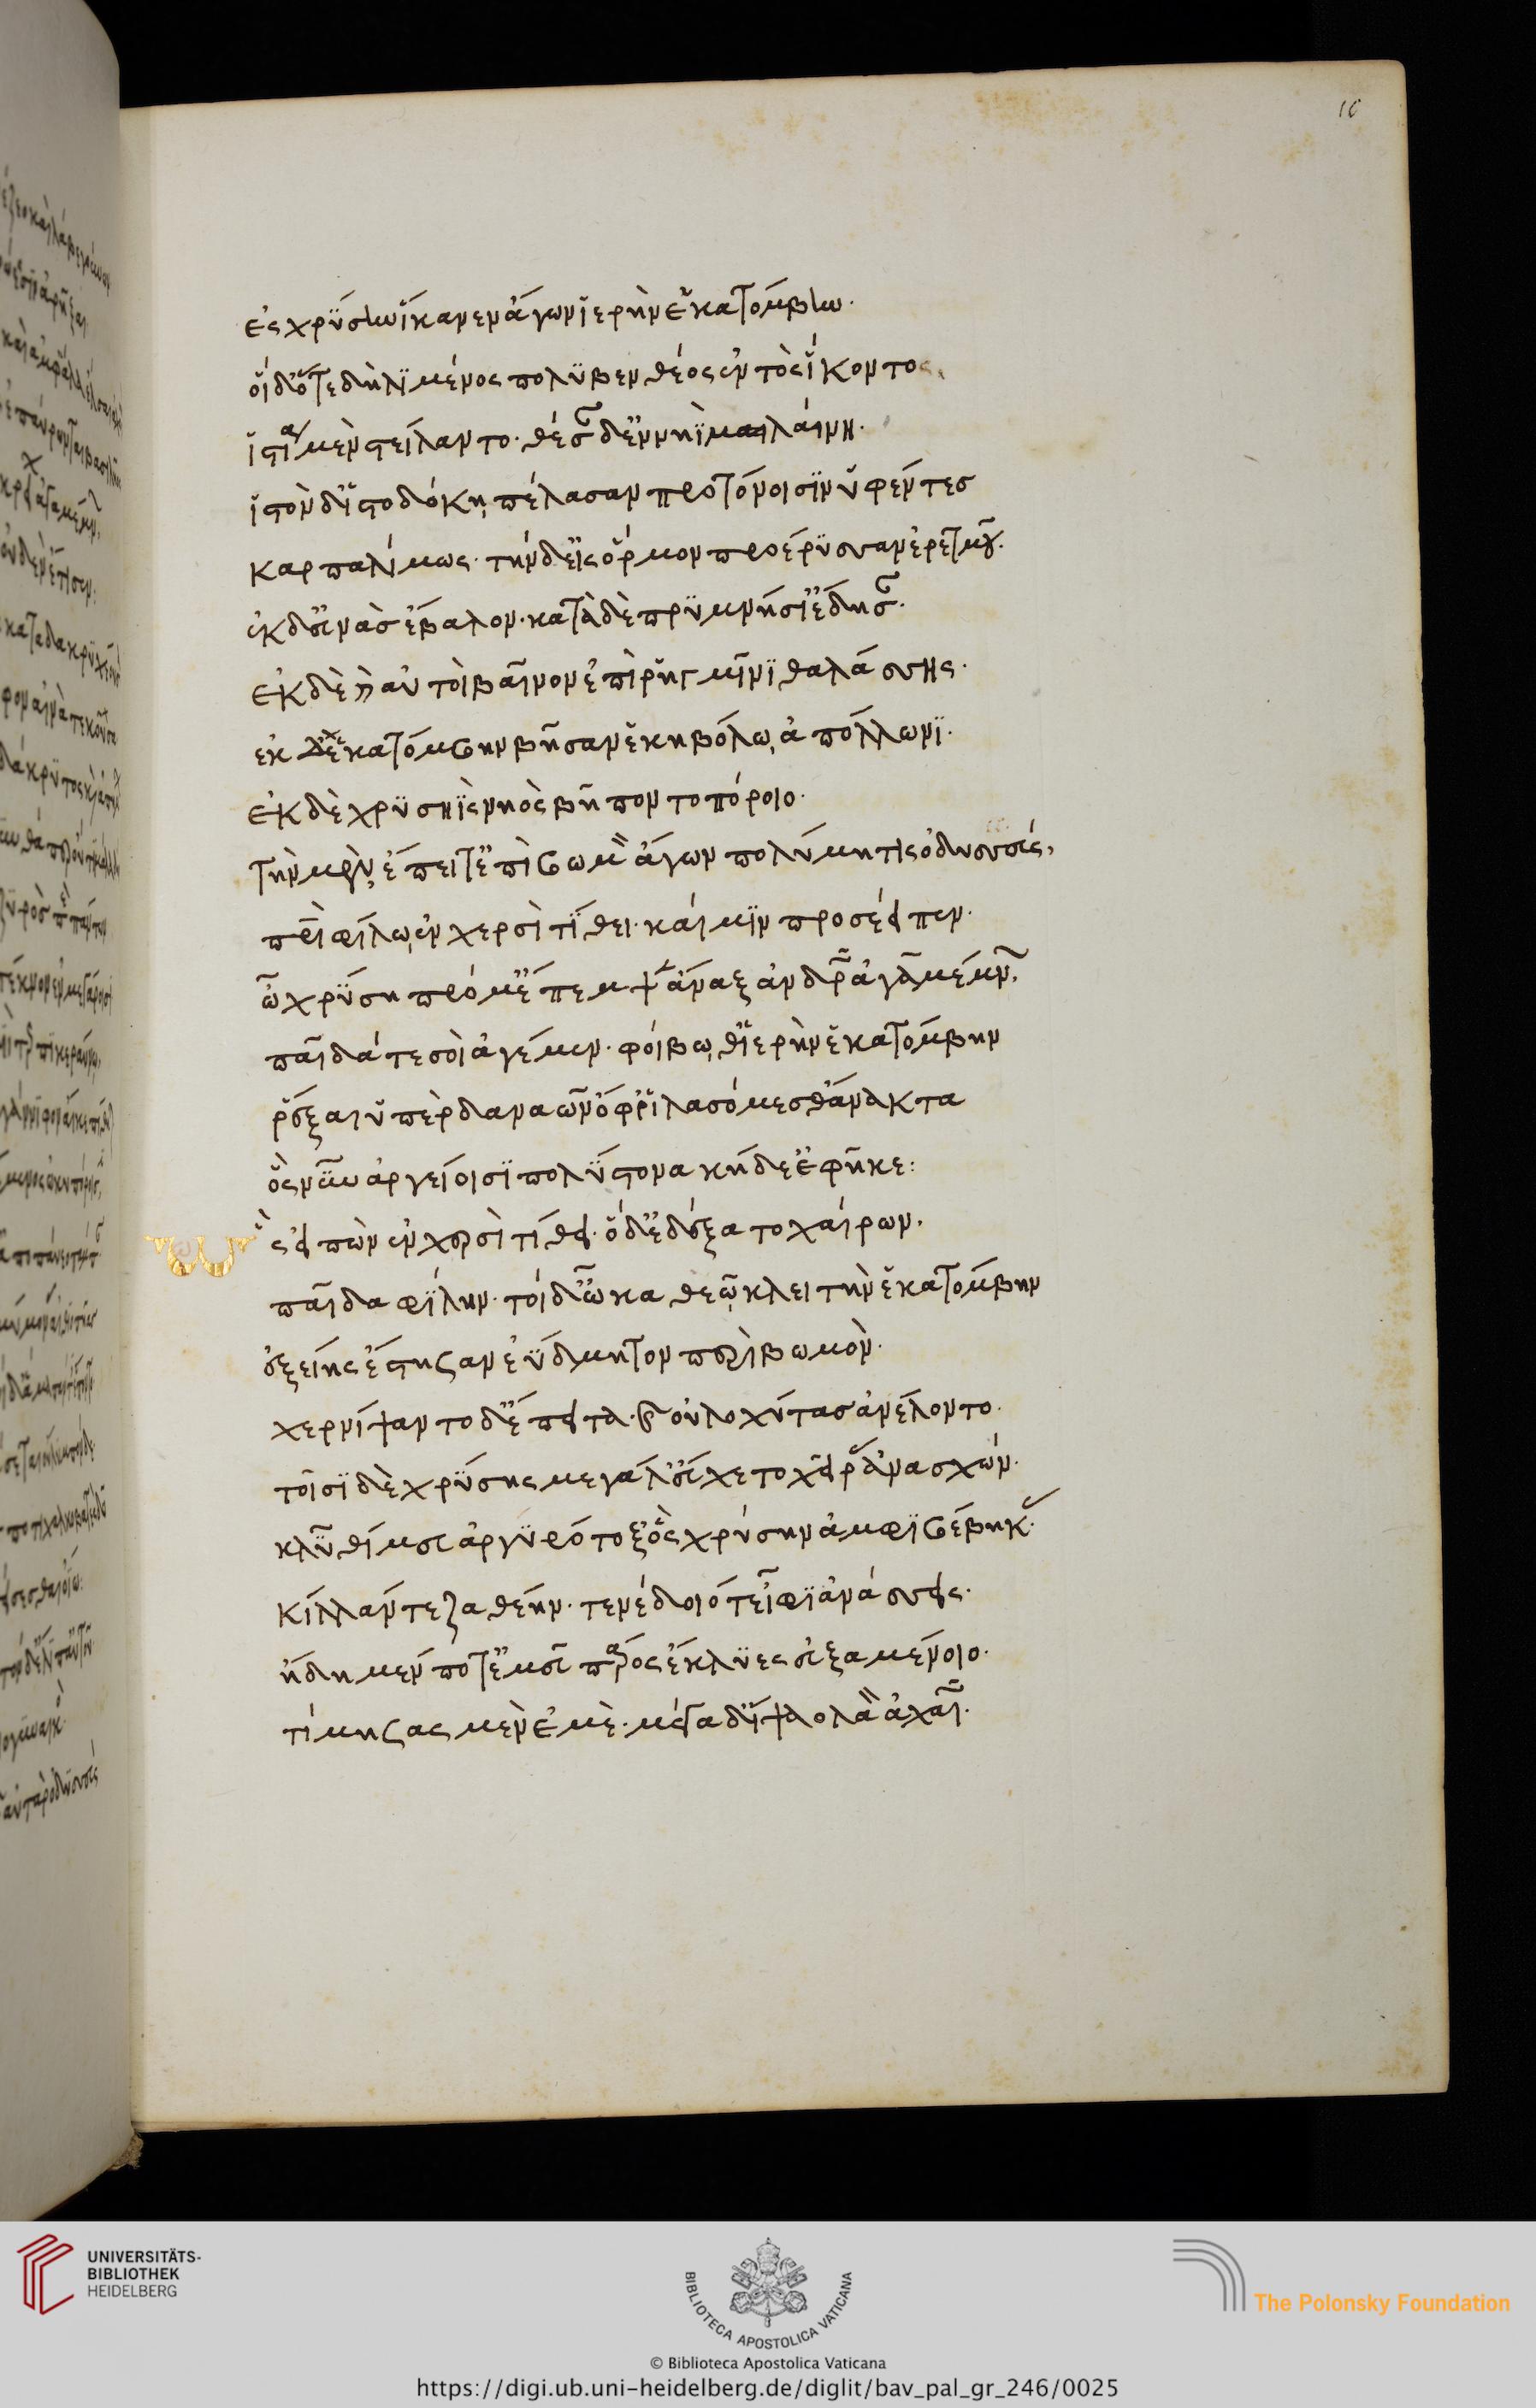 10
ἐς χρύσην ἵκανεν ἄγων ἱερὴν ἑκατόμβην.
οἱ δ' ὅτε δὴ λιμένος πολυβενθέος ἐντὸς ἵκοντο.
ἱστία μὲν στείλαντο. θέσαν δ' ἐν νηῒ μελαίνη.
ἱστὸν δ' ἱστοδόκη πέλασαν προτόνοισιν ὑφέντες
καρπαλίμως. τὴν δ' εἰς ὅρμον προέρυσσαν ἐρετμοῖς.
ἐκ δ' εὐνὰσ ἔβαλον. κατὰ δὲ πρυμνήσι' ἔδησαν.
ἐκ δὲ καὶ αὐτοὶ βαῖνον ἐπὶ ῥηγμῖνι θαλάσσης.
ἐκ δ' ἑκατόμβην βῆσαν ἑκηβόλω ἀπόλλωνι.
ἐκ δὲ χρυσηῒς νηὸς βῆ ποντοπόροιο.
τὴν μὲν ἔπειτ' ἐπὶ βωμὸν ἄγων πολύμητις ὀδυσσεύς,
πατρὶ φίλω ἐν χερσὶ τίθει. καί μιν προσέειπεν.
ὦ χρύση πρό μ' ἔπεμψεν ἄναξ ἀνδρῶν ἀγαμέμνων,
παῖδά τε σοὶ ἀγέμεν. φοίβω θ' ἱερὴν ἑκατόμβην
ῥέξαι ὑπὲρ δαναῶν ὄφρ' ἱλασόμεσθ' ἄνακτα
ὃς νῦν ἀργείοισι πολύστονα κήδε' ἐφῆκε:
ὣς εἰπὼν ἐν χερσὶ τίθει. ὁ δ' ἐδέξατο χαίρων.
παῖδα φίλην. τοὶ δ' ὦκα θεῶ κλειτὴν ἑκατόμβην
ἑξείης ἔστησαν ἐΰδμητον περὶ βωμὸν.
χερνίψαντο δ' ἔπειτα. καὶ οὐλοχύτασ ἀνέλοντο.
τοῖσι δὲ χρύσης μεγάλ' εὔχετο χεῖρας ἀνασχών.
κλῦθί μευ ἀργυρότοξ' ὃς χρύσην ἀμφιβέβηκας.
κίλλαν τε ζαθέην. τενέδοιό τε ἶφι ἀνάσσεις.
ἤδη μέν ποτ' ἐμεῦ πάρος ἔκλυες εὐξαμένοιο.
τίμησας μὲν ἐμὲ. μέγα δ' ἴψαο λαὸν ἀχαιῶν.
UNIVERSITÄTS-
BIBLIOTHEK
HEIDELBERG
BIBLIOTECA APOSTOLICA VATICANA
The Polonsky Foundation
© Biblioteca Apostolica Vaticana
https://digi.ub.uni-heidelberg.de/diglit/bav_pal_gr_246/0025